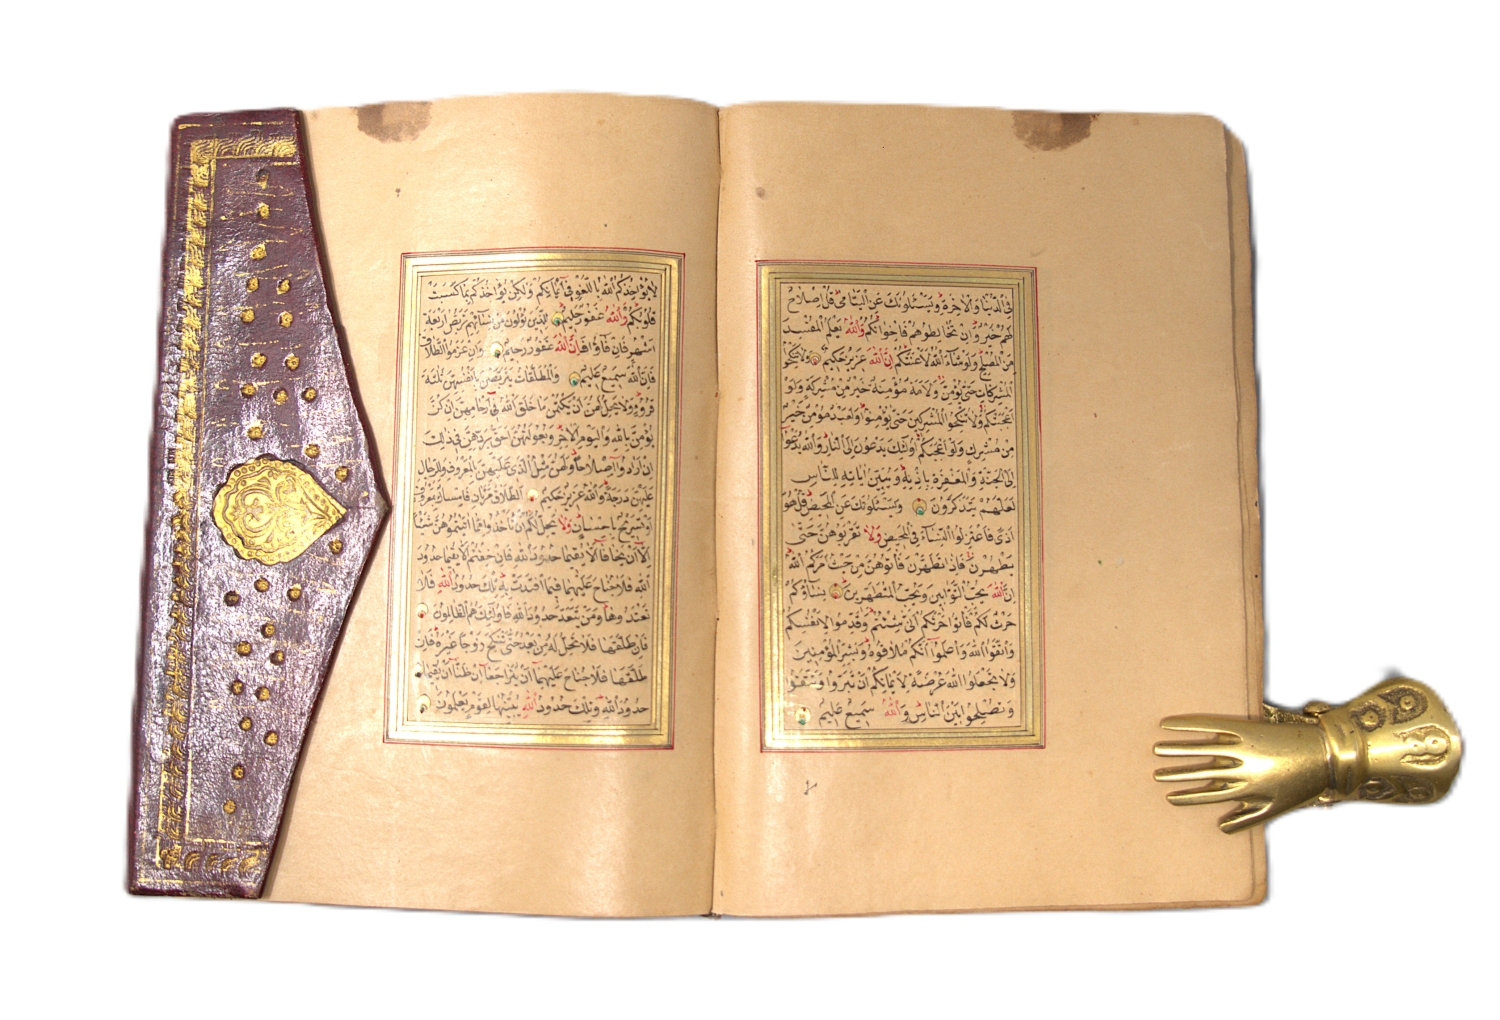 في الدنيا والاخرة ويسئلونك عن اليتامى قل اصلاح
لهم خير وان تخالطوهم فاخوانكم والله يعلم المفسد
من المصلح ولو شاء الله لاعنتكم ان الله عزيز حكيم ولا تنكحوا
المشركات حتى يؤمن ولامة مؤمنة خير من مشركة ولو
اعجبتكم ولا تنكحوا المشركين حتى يؤمنوا ولعبد مؤمن خير
من مشرك ولو اعجبكم اولئك يدعون الى النار والله يدعوا
الى الجنة والمغفرة باذنه ويبين اياته للناس
لعلهم يتذكرون ويسئلونك عن المحيض قل هو
اذى فاعتزلوا النساء في المحيض ولا تقربوهن حتى
يطهرن فاذا تطهرن فاتوهن من حيث امركم الله
ان الله يحب التوابين ويحب المتطهرين نساؤكم
حرث لكم فاتوا حرثكم انى شئتم وقدموا لانفسكم
واتقوا الله واعلموا انكم ملاقوه وبشر المؤمنين
ولا تجعلوا الله عرضة لايمانكم ان تبروا وتتقوا
وتصلحوا بين الناس والله سميع عليم
لا يؤاخذكم الله باللغو في ايمانكم ولكن يؤاخذكم بما كسبت
قلوبكم والله غفور حليم للذين يؤلون من نسائهم تربص اربعة
اشهر فان فاؤا فان الله غفور رحيم وان عزموا الطلاق
فان الله سميع عليم والمطلقات يتربصن بانفسهن ثلثة
قروء ولا يحل لهن ان يكتمن ما خلق الله في ارحامهن ان كن
يؤمن بالله واليوم الاخر وبعولتهن احق بردهن في ذلك
ان ارادوا اصلاحا ولهن مثل الذي عليهن بالمعروف وللرجال
عليهن درجة والله عزيز حكيم الطلاق مرتان فامساك بمعروف
او تسريح باحسان ولا يحل لكم ان تاخذوا مما اتيتموهن شيئا
الا ان يخافا الا يقيما حدود الله فان خفتم الا يقيما حدود
الله فلا جناح عليهما فيما افتدت به تلك حدود الله فلا
تعتدوها ومن يتعد حدود الله فاولئك هم الظالمون
فان طلقها فلا تحل له من بعد حتى تنكح زوجا غيره فان
طلقها فلا جناح عليهما ان يتراجعا ان ظنا ان يقيما
حدود الله وتلك حدود الله يبينها لقوم يعلمون